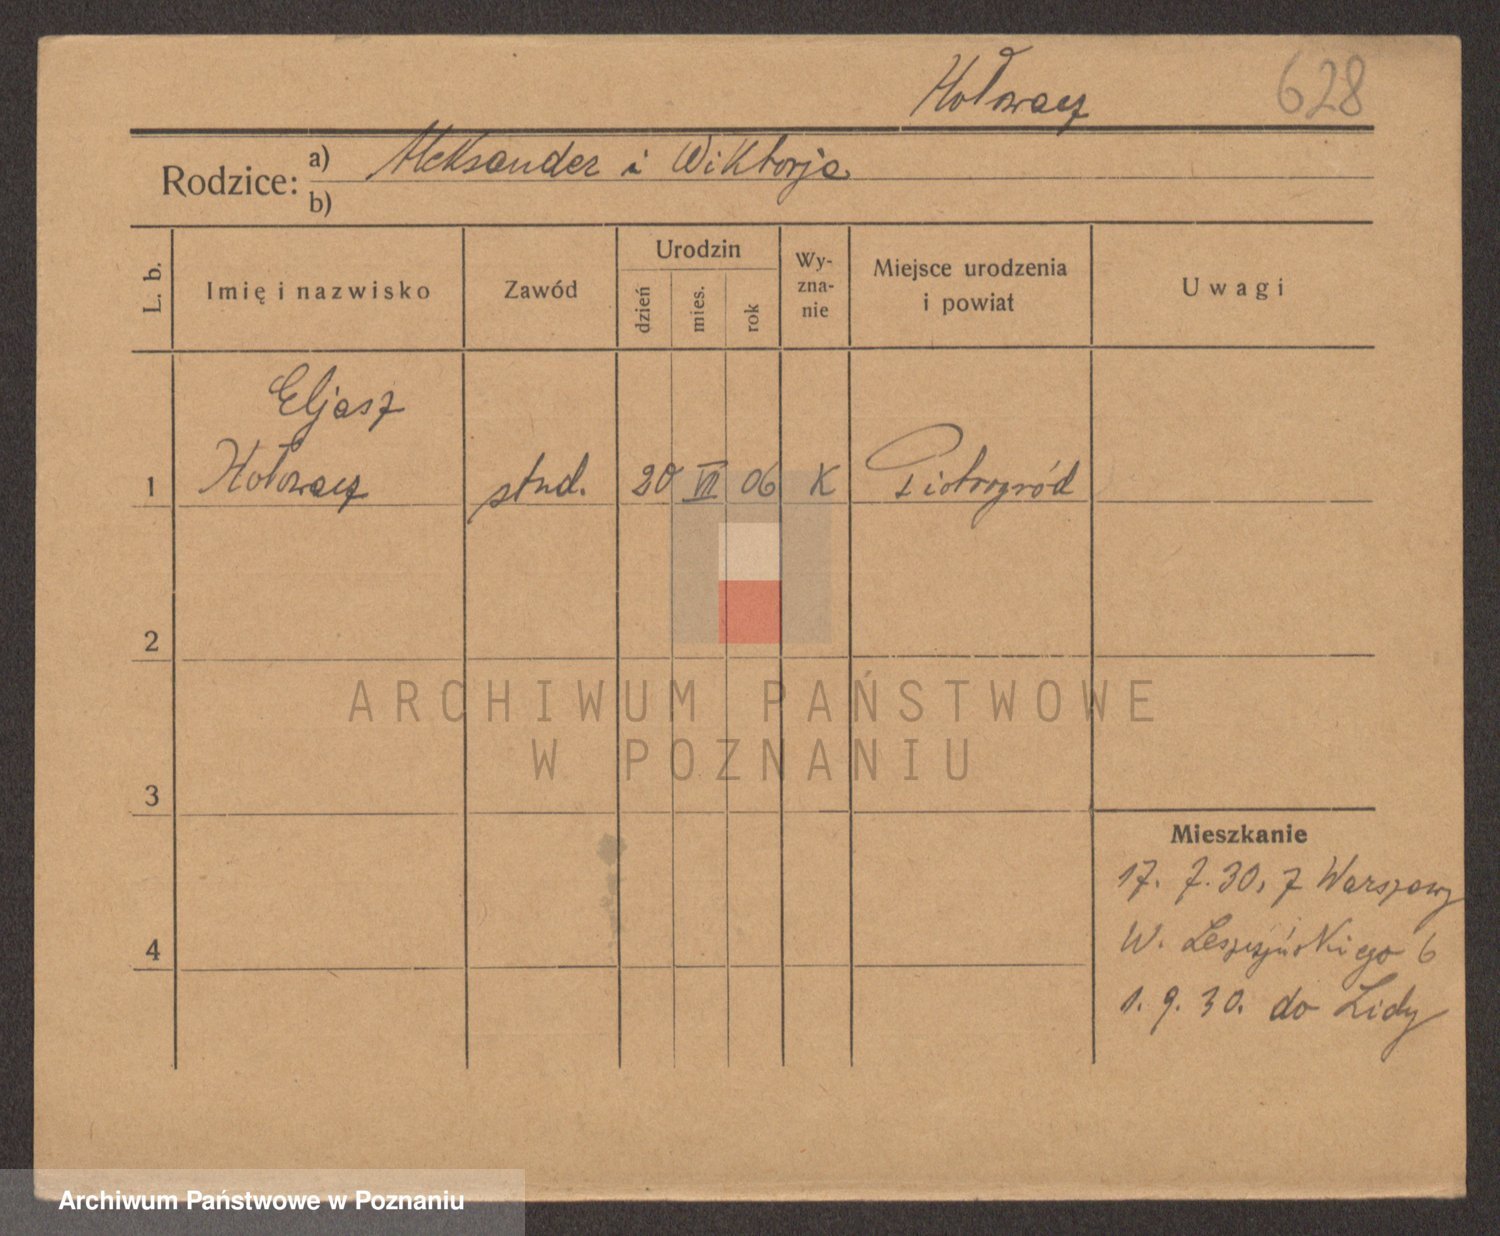 Hołowacz 628
Rodzice: a) Aleksander i Wiktorja
b)
L. b. Imię i nazwisko Zawód Urodzin dzień mies. rok Wyzna-nie Miejsce urodzenia i powiat Uwagi
Eljasz
1 Hołowacz stud. 20 VII 06 K Piotrogród
2
ARCHIWUM PAŃSTWOWE
W POZNANIU
3
Mieszkanie
17. 7. 30, z Warszawy
W. Leszczyńskiego 6
4
1. 9. 30. do Lidy
Archiwum Państwowe w Poznaniu